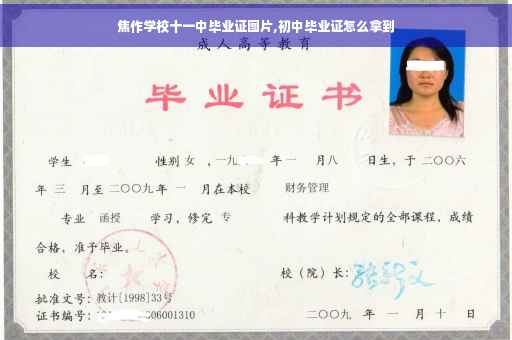 焦作学校十一中毕业证图片,初中毕业证怎么拿到
成人高等教育
毕业证书
学生 性别 女 ,一九 年 一 月八 日生，于 二〇〇六
年 三 月至 二〇〇九 年 一 月在本校 财务管理
专业 函授 学习，修完 专 科教学计划规定的全部课程，成绩
合格，准予毕业。
校 名： 校（院）长：
批准文号：教计[1998]33号
证书编号： 06001310 二〇〇九 年 一 月 十 日